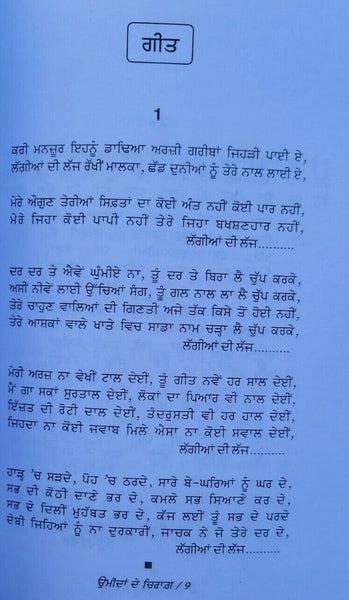 ਗੀਤ
1
ਕਰੀ ਮਨਜ਼ੂਰ ਇਹਨੂੰ ਡਾਢਿਆ ਅਰਜ਼ੀ ਗਰੀਬਾਂ ਜਿਹੜੀ ਪਾਈ ਏ,
ਲੱਗੀਆਂ ਦੀ ਲੱਜ ਰੱਖੀਂ ਮਾਲਕਾ, ਛੱਡ ਦੁਨੀਆਂ ਨੂੰ ਤੇਰੇ ਨਾਲ ਲਾਈ ਏ,
ਮੇਰੇ ਔਗੁਣ ਤੇਰੀਆਂ ਸਿਫ਼ਤਾਂ ਦਾ ਕੋਈ ਅੰਤ ਨਹੀਂ ਕੋਈ ਪਾਰ ਨਹੀਂ,
ਮੇਰੇ ਜਿਹਾ ਕੋਈ ਪਾਪੀ ਨਹੀਂ ਤੇਰੇ ਜਿਹਾ ਬਖਸ਼ਣਹਾਰ ਨਹੀਂ,
ਲੱਗੀਆਂ ਦੀ ਲੱਜ..........
ਦਰ ਦਰ ਤੇ ਐਵੇਂ ਘੁੰਮੀਏ ਨਾ, ਤੂੰ ਦਰ ਤੇ ਬਿਠਾ ਲੈ ਚੁੱਪ ਕਰਕੇ,
ਅਸੀ ਨੀਵੇਂ ਲਾਈ ਉੱਚਿਆਂ ਸੰਗ, ਤੂੰ ਗਲ ਨਾਲ ਲਾ ਲੈ ਚੁੱਪ ਕਰਕੇ,
ਤੇਰੇ ਚਾਹੁਣ ਵਾਲਿਆਂ ਦੀ ਗਿਣਤੀ ਅਜੇ ਤੱਕ ਕਿਸੇ ਤੋਂ ਹੋਈ ਨਹੀਂ,
ਤੇਰੇ ਆਸ਼ਕਾਂ ਵਾਲੇ ਖਾਤੇ ਵਿਚ ਸਾਡਾ ਨਾਮ ਚੜ੍ਹਾ ਲੈ ਚੁੱਪ ਕਰਕੇ,
ਲੱਗੀਆਂ ਦੀ ਲੱਜ..........
ਮੇਰੀ ਅਰਜ਼ ਨਾ ਵੇਖੀਂ ਟਾਲ ਦੇਈਂ, ਤੂੰ ਗੀਤ ਨਵੇਂ ਹਰ ਸਾਲ ਦੇਈਂ,
ਮੈਂ ਗਾ ਸਕਾਂ ਸੁਰਤਾਲ ਦੇਈਂ, ਲੋਕਾਂ ਦਾ ਪਿਆਰ ਵੀ ਨਾਲ ਦੇਈਂ,
ਇੱਜ਼ਤ ਦੀ ਰੋਟੀ ਦਾਲ ਦੇਈਂ, ਤੰਦਰੁਸਤੀ ਵੀ ਹਰ ਹਾਲ ਦੇਈਂ,
ਜਿਹਦਾ ਨਾ ਕੋਈ ਜਵਾਬ ਮਿਲੇ ਐਸਾ ਨਾ ਕੋਈ ਸਵਾਲ ਦੇਈਂ,
ਲੱਗੀਆਂ ਦੀ ਲੱਜ..........
ਹਾੜ੍ਹ 'ਚ ਸੜਦੇ, ਪੋਹ 'ਚ ਠਰਦੇ, ਸਾਰੇ ਬੇ-ਘਰਿਆਂ ਨੂੰ ਘਰ ਦੇ,
ਸਭ ਦੀ ਕੋਠੀ ਦਾਣੇ ਭਰ ਦੇ, ਕਮਲੇ ਸਭ ਸਿਆਣੇ ਕਰ ਦੇ,
ਸਭ ਦੇ ਦਿਲੀਂ ਮੁਹੱਬਤ ਭਰ ਦੇ, ਕੱਜ ਲਈਂ ਤੂੰ ਸਭ ਦੇ ਪਰਦੇ
ਦੇਬੀ ਜਿਹਿਆਂ ਨੂੰ ਨਾ ਦੁਰਕਾਰੀਂ, ਜਾਚਕ ਨੇ ਜੋ ਤੇਰੇ ਦਰ ਦੇ,
ਲੱਗੀਆਂ ਦੀ ਲੱਜ..........
ਉਮੀਦਾਂ ਦੇ ਚਿਰਾਗ / 9